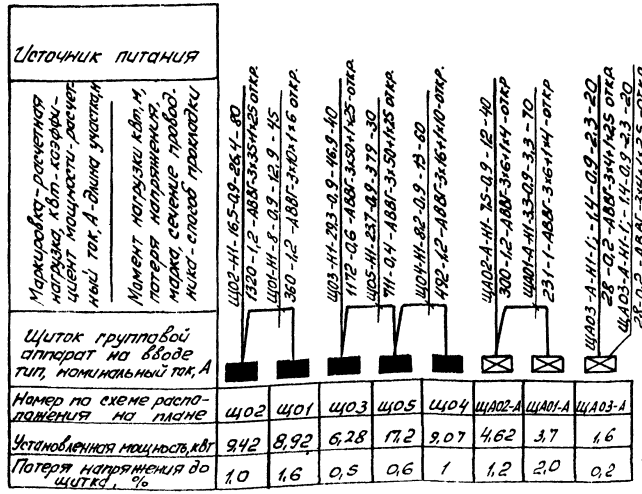 Источник питания
Маркировка-расчетная
нагрузка, квт-коэффи-
циент мощности-расчет-
ный ток, А-длина участка, м
Момент нагрузки квт.м,
потеря напряжения,
марка, сечение провод-
ника-способ прокладки
ЩО2-Н1-16,5-0,9-26,4-80
1320-1,2-АВВГ-3×35+1×25 откр.
ЩО1-Н1-8-0,9-12,9-45
360-1,2-АВВГ-3×10×1×6 откр.
ЩО3-Н1-29,3-0,9-46,9-40
1172-0,6-АВВГ-3×50+1×25-откр.
ЩО5-Н1-23,7-0,9-37,9-30
711-0,4-АВВГ-3×50+1×25 откр.
ЩО4-Н1-8,2-0,9-13-60
492-1,2-АВВГ-3×16+1×10-откр.
ЩАО2-А-Н1-7,5-0,9-12-40
300-1,2-АВВГ-3×6+1×4-откр
ЩАО1-А-Н1-3,3-0,9-3,3-70
231-1-АВВГ-3×6+1×4-откр
ЩАО3-А-Н1-1;-1,4-0,9-2,3-20
28-0,2-АВВГ-3×4+1×2,5 откр
ЩАО3-А-Н1-1;-1,4-0,9-2,3-20
Щиток групповой
аппарат на вводе
тип, номинальный ток, А
Номер по схеме распо-
ложения на плане
ЩО2 ЩО1 ЩО3 ЩО5 ЩО4 ЩАО2-А ЩАО1-А ЩАО3-А
Установленная мощность, кВт 9,42 8,92 6,28 17,2 9,07 4,62 3,7 1,6
Потеря напряжения до
щитка, % 1,0 1,6 0,5 0,6 1 1,2 2,0 0,2